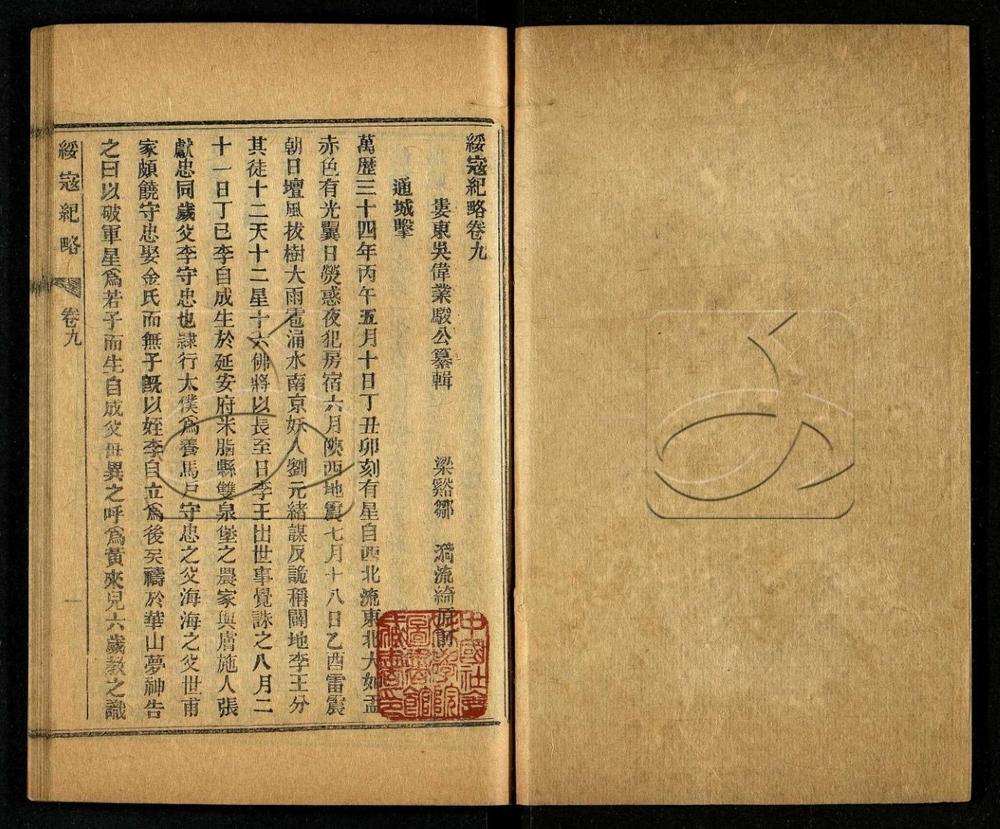 綏寇紀略卷九
婁東吳偉業駿公纂輯　梁谿鄒　漪流綺
通城擊
萬歷三十四年丙午五月十日丁丑卯刻有星自西北流東北大如盂
赤色有光翼日熒惑夜犯房宿六月陝西地震七月十八日乙酉雷震
朝日壇風拔樹大雨雹涌水南京妖人劉元緒謀反詭稱闢地李王分
其徒十二天十二星十六佛將以長至日李王出世事覺誅之八月二
十一日丁巳李自成生於延安府米脂縣雙泉堡之農家與膚施人張
獻忠同歲父李守忠也隸行太僕爲養馬戶守忠之父海海之父世甫
家頗饒守忠娶金氏而無子旣以姪李自立爲後矣禱於華山夢神告
之曰以破軍星爲若子而生自成父母異之呼爲黃來兒六歲教之識
綏寇紀略
卷九
一
中國社會
科學院
圖書館
藏書印